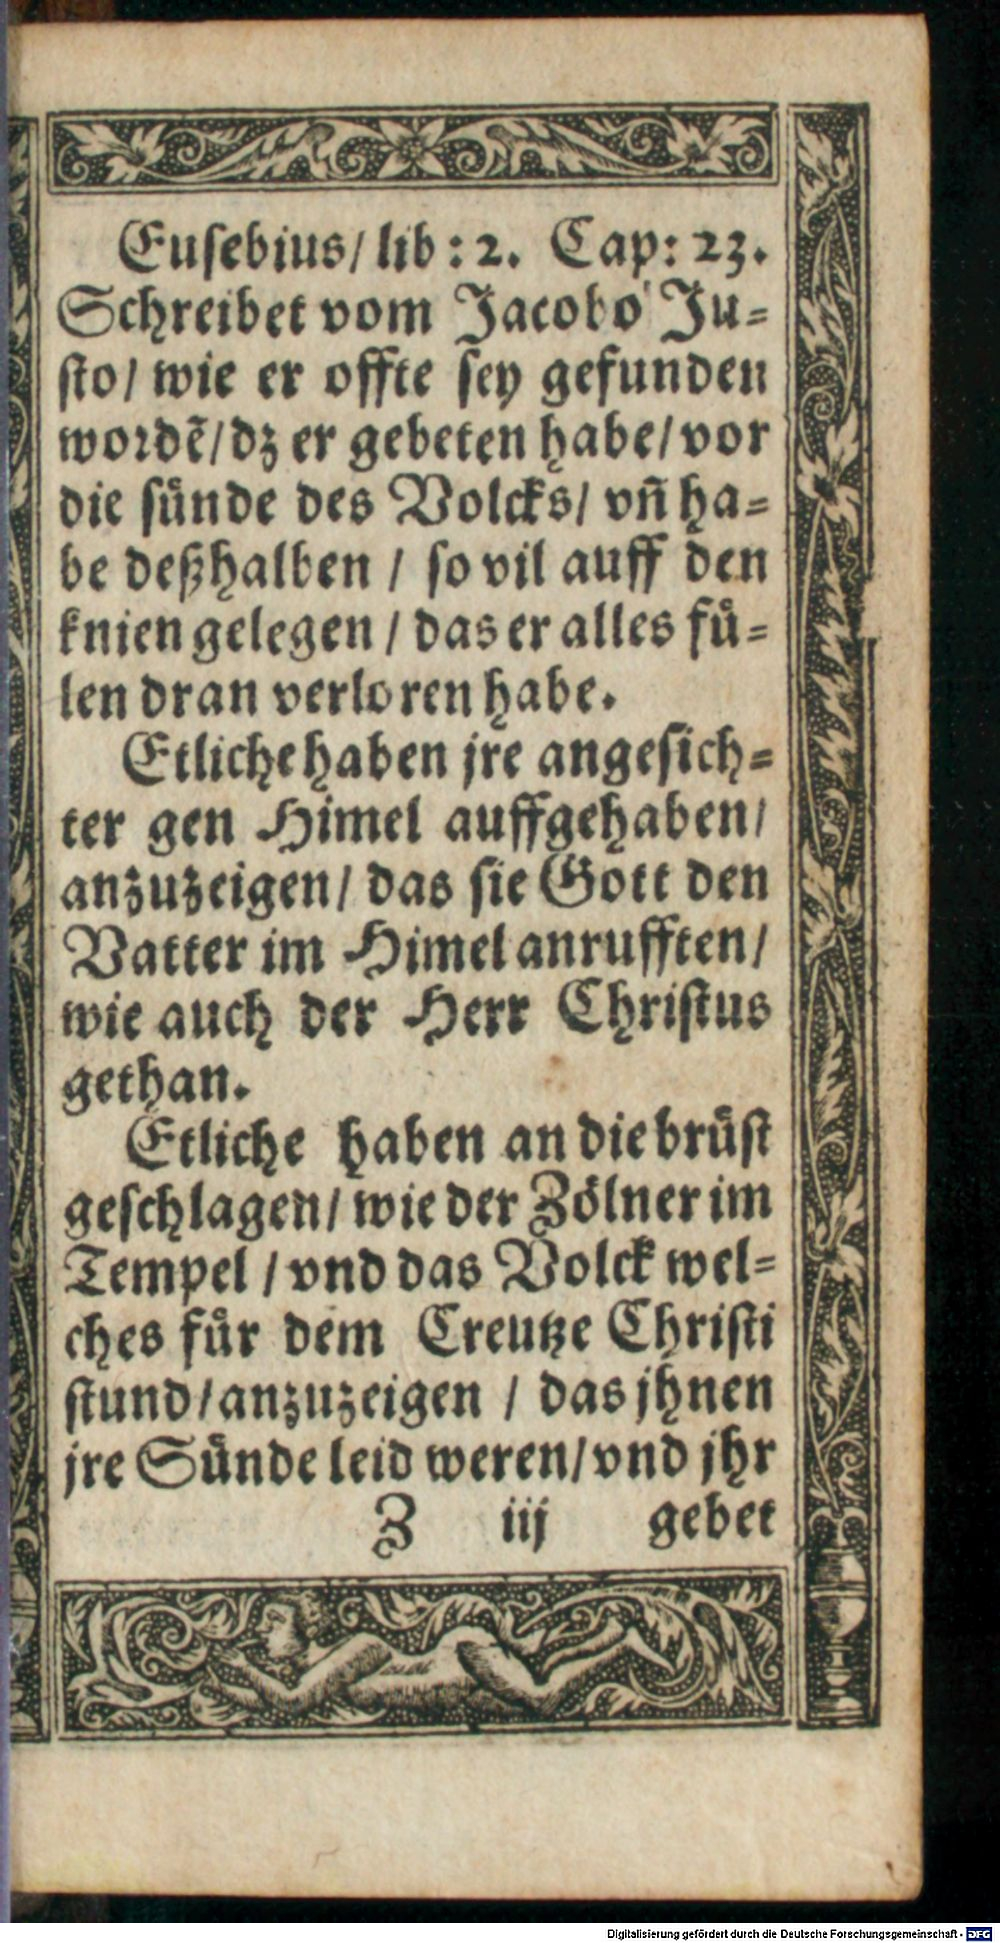 Eusebius/ lib: 2. Cap: 23.
Schreibet vom Jacobo Ju=
sto/ wie er offte sey gefunden
wordẽ/ dz er gebeten habe/ vor
die sünde des Volcks/ vñ ha=
be deßhalben / so vil auff den
knien gelegen / das er alles fü=
len dran verloren habe.
Etliche haben jre angesich=
ter gen Himel auffgehaben/
anzuzeigen/ das sie Gott den
Vatter im Himel anrufften/
wie auch der Herr Christus
gethan.
Etliche haben an die brüst
geschlagen/ wie der Zölner im
Tempel / vnd das Volck wel=
ches für dem Creutze Christi
stund/ anzuzeigen / das jhnen
jre Sünde leid weren/ vnd jhr
Z iij gebet
Digitalisierung gefördert durch die Deutsche Forschungsgemeinschaft - DFG